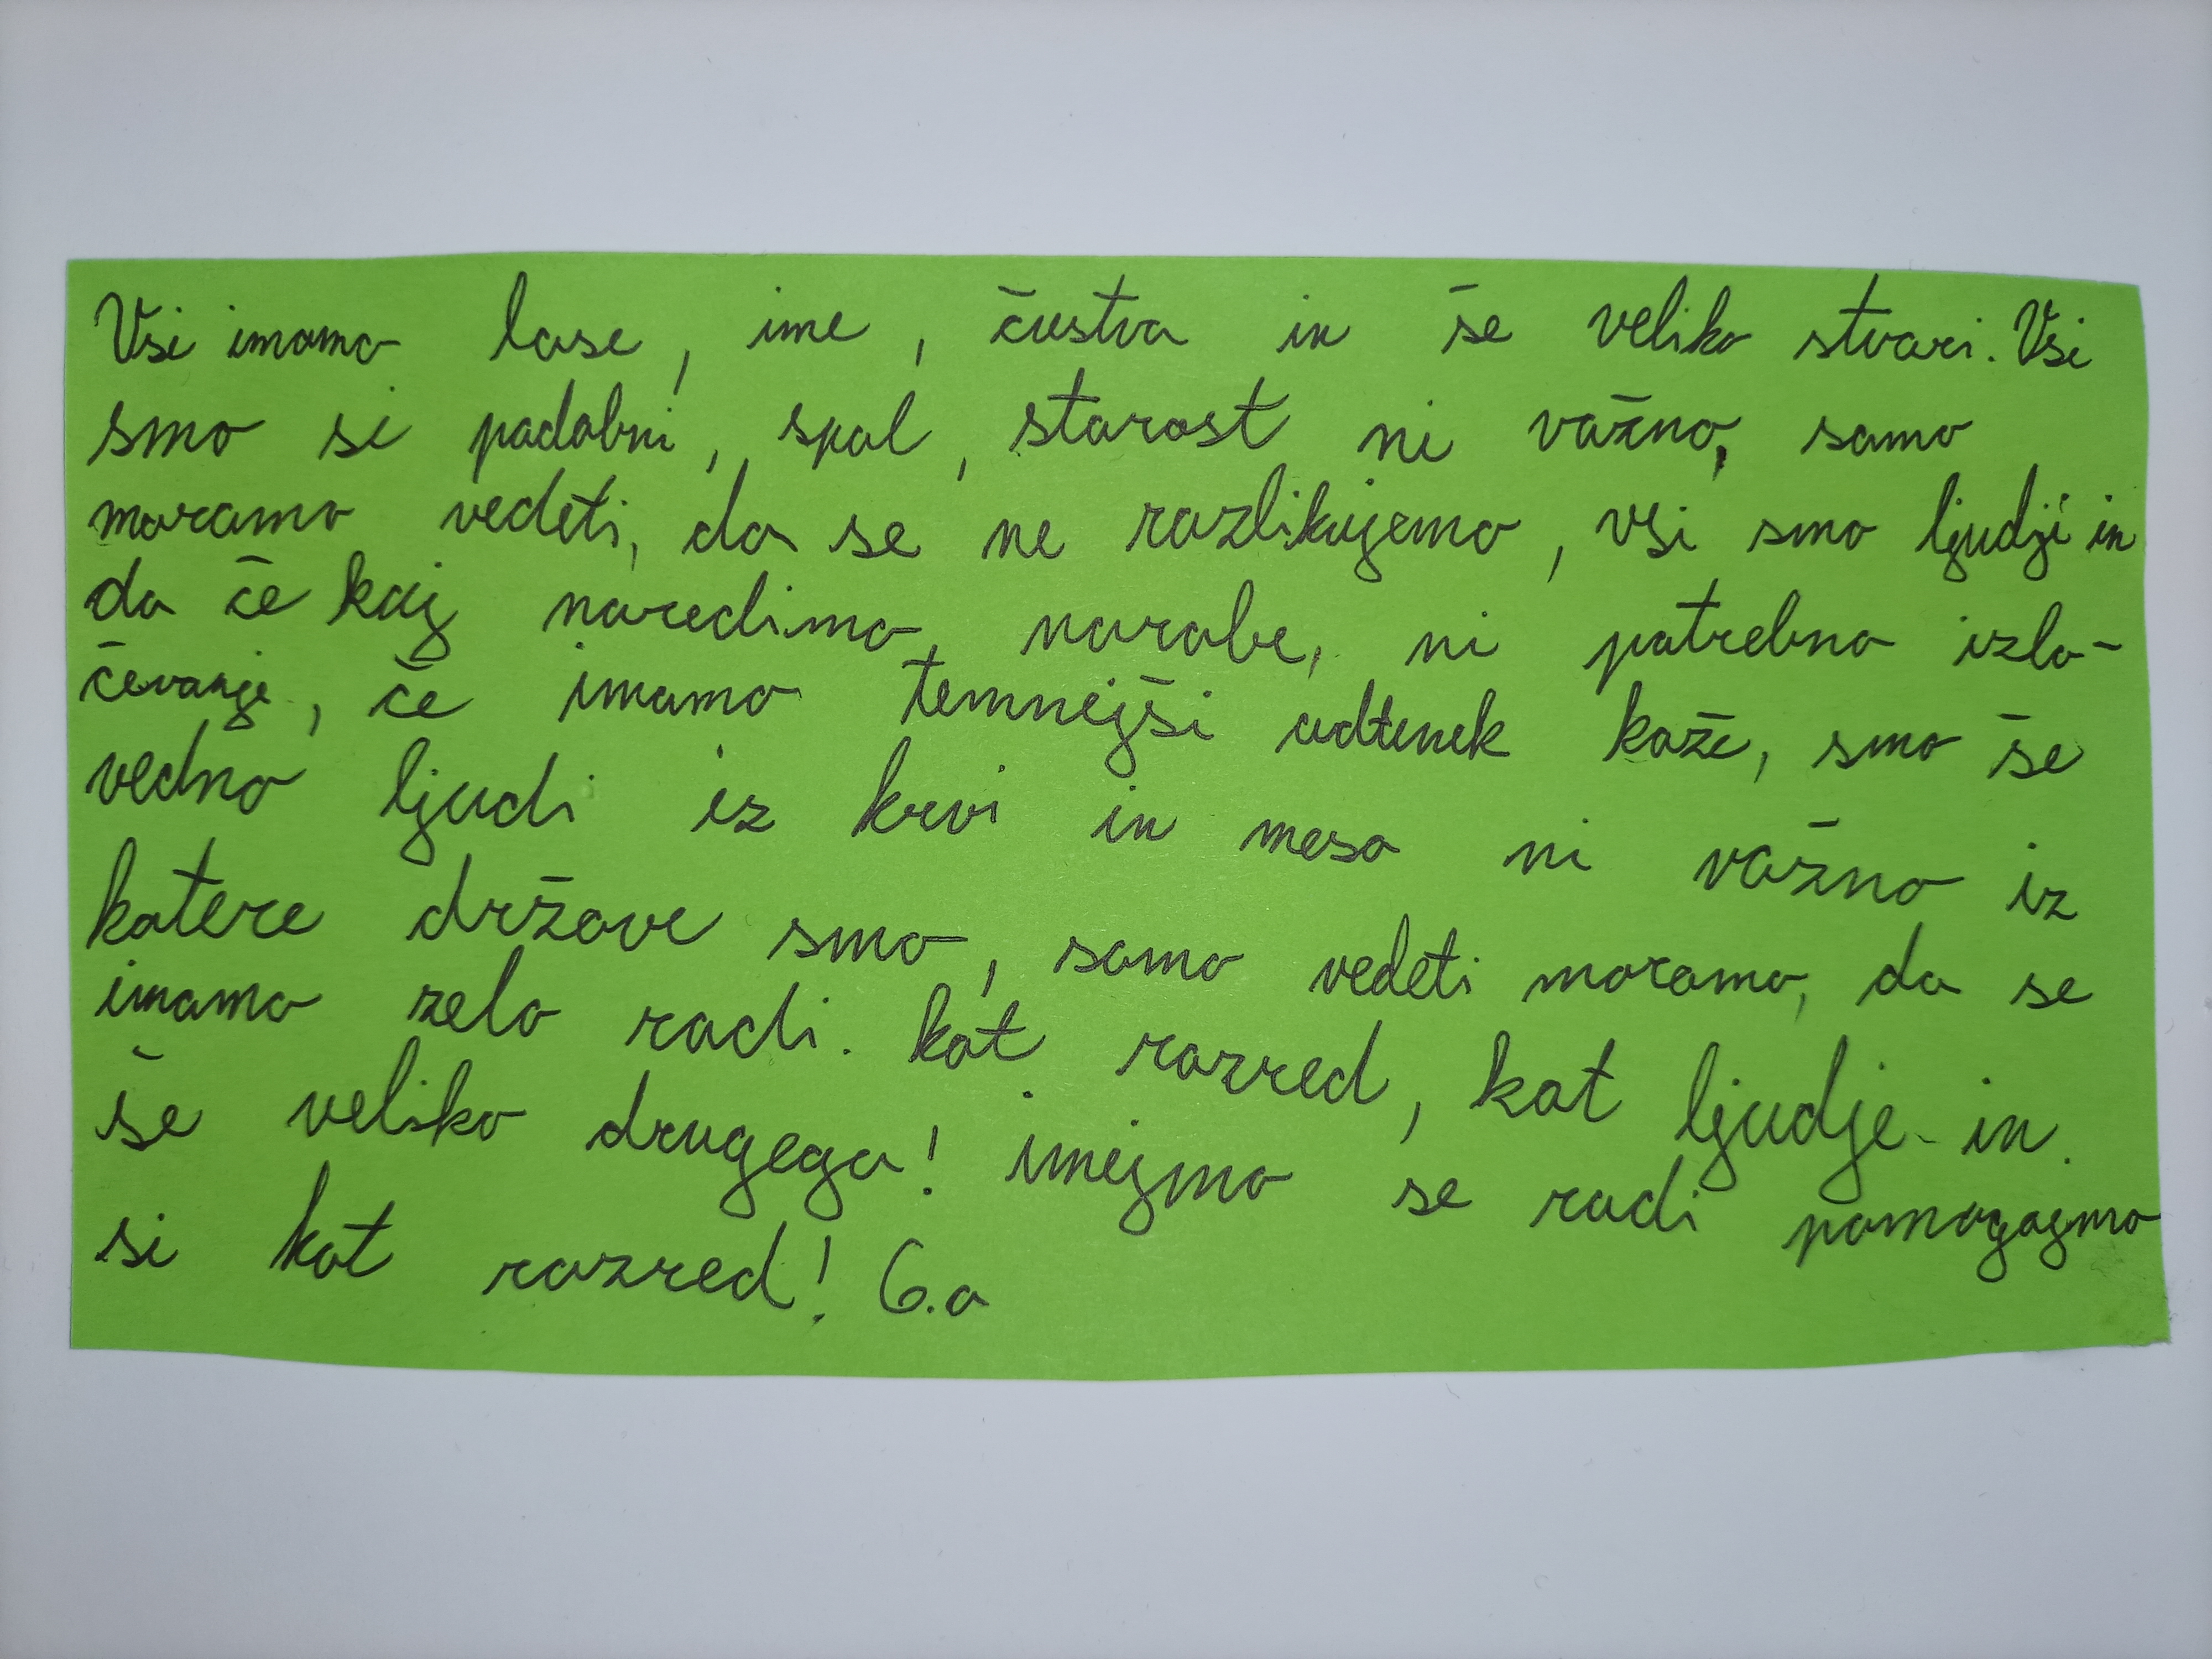 Vsi imamo lase, ime, čustva in še veliko stvari. Vsi
smo si podobni, spol, starost ni važno, samo
moramo vedeti, da se ne razlikujemo, vsi smo ljudji in
da če kaj naredimo narobe, ni potrebno izlo-
čevanje, če imamo temnejši odtenek kože, smo še
vedno ljudi iz krvi in meso ni važno iz
katere države smo, samo vedeti moramo, da se
imamo zelo radi. kot razred, kot ljudje in
še veliko drugega! imejmo se radi pomagajmo
si kot razred! 6.a